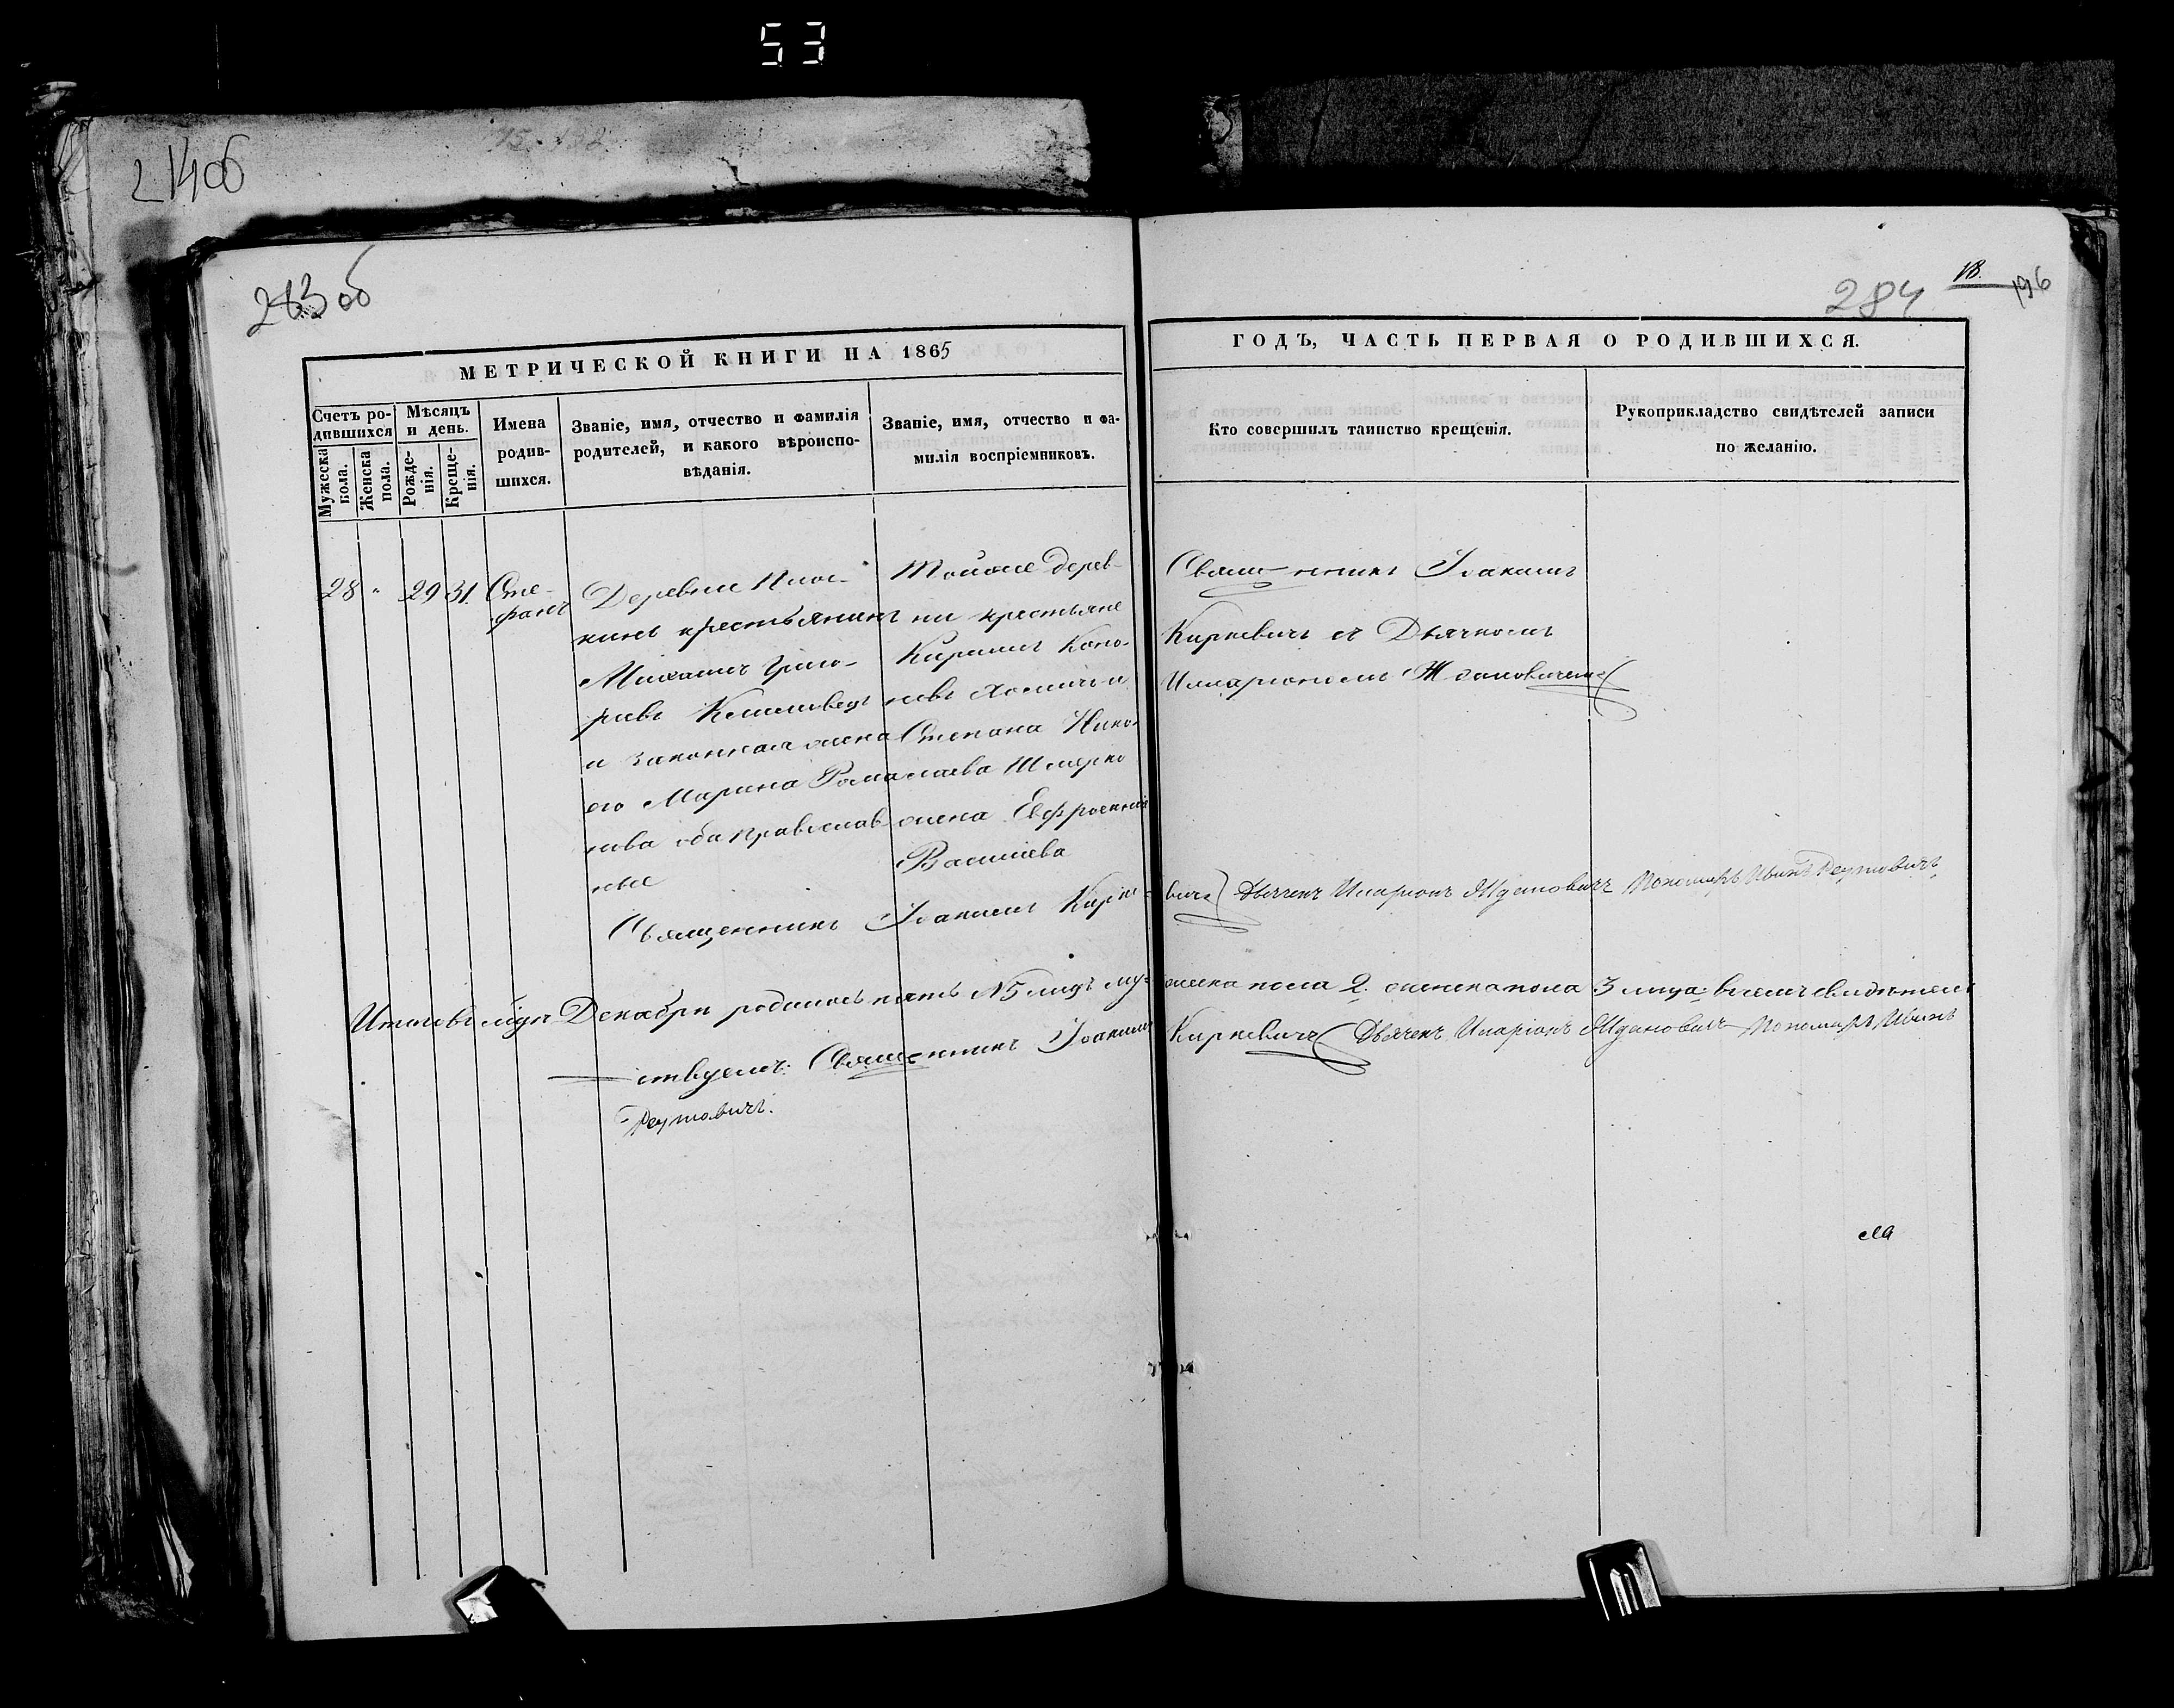 53
214об
283об
284
18.
196
МЕТРИЧЕСКОЙ КНИГИ НА 1865
ГОДЪ, ЧАСТЬ ПЕРВАЯ О РОДИВШИХСЯ.
Счетъ ро-
дившихся
Мужеска
пола.
Женска
пола.
Мѣсяцъ
и день.
Рожде-
нія.
Креще-
нія.
Имена
родив-
шихся.
Званіе, имя, отчество и фамилія
родителей, и какого вѣроиспо-
вѣданія.
Званіе, имя, отчество и фа-
милія воспріемниковъ.
Кто совершилъ таинство крещенія.
Рукоприкладство свидѣтелей записи
по желанію.
28 " 29 31.
Сте-
фанъ
Деревни
крестьянинъ
Михаилъ Григо-
рьевъ
и законная жена
его Марина Рома-
нова оба православ-
ные
Тойже дерев-
ни крестьяне
Кирилъ Коно-
новъ Хомичъ и
Степана Нико-
лаева
жена Евфросинія
Васильева
Священникъ Іоакимъ
Киркевичъ съ Дьячкомъ
Иларіономъ Ждановичемъ
Священникъ Іоакимъ Киркевичъ Дьячекъ Иларіонъ Ждановичъ Пономарь Иванъ Реутовичъ
Итого въ мѣсяцѣ Декабрѣ родилось пять №5 лицъ мужеска пола 2. женска пола 3 лица: въ семъ свидѣтель
ствуемъ: Священникъ Іоакимъ Киркевичъ Дьячекъ Иларіонъ Ждановичъ Пономарь Иванъ
Реутовичъ.